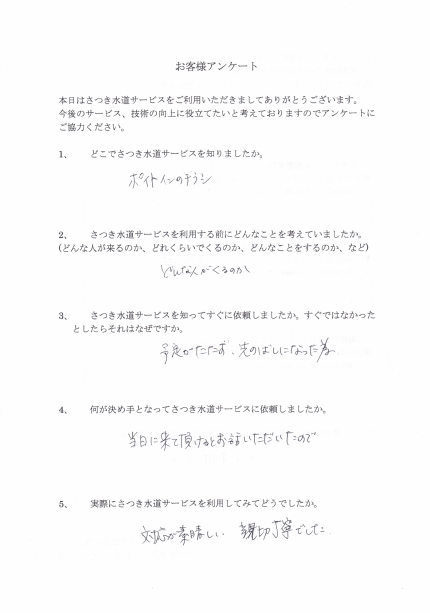 お客様アンケート
本日はさつき水道サービスをご利用いただきましてありがとうございます。
今後のサービス、技術の向上に役立てたいと考えておりますのでアンケートに
ご協力ください。
1、 どこでさつき水道サービスを知りましたか。
ポイトインのチラシ
2、 さつき水道サービスを利用する前にどんなことを考えていましたか。
(どんな人が来るのか、どれくらいでくるのか、どんなことをするのか、など)
どんな人がくるのか
3、 さつき水道サービスを知ってすぐに依頼しましたか。すぐではなかった
としたらそれはなぜですか。
予定がたたず、先のばしになった為
4、 何が決め手となってさつき水道サービスに依頼しましたか。
当日に来て頂けるとお話いただいたので
5、 実際にさつき水道サービスを利用してみてどうでしたか。
対応が素晴しい 親切丁寧でした.